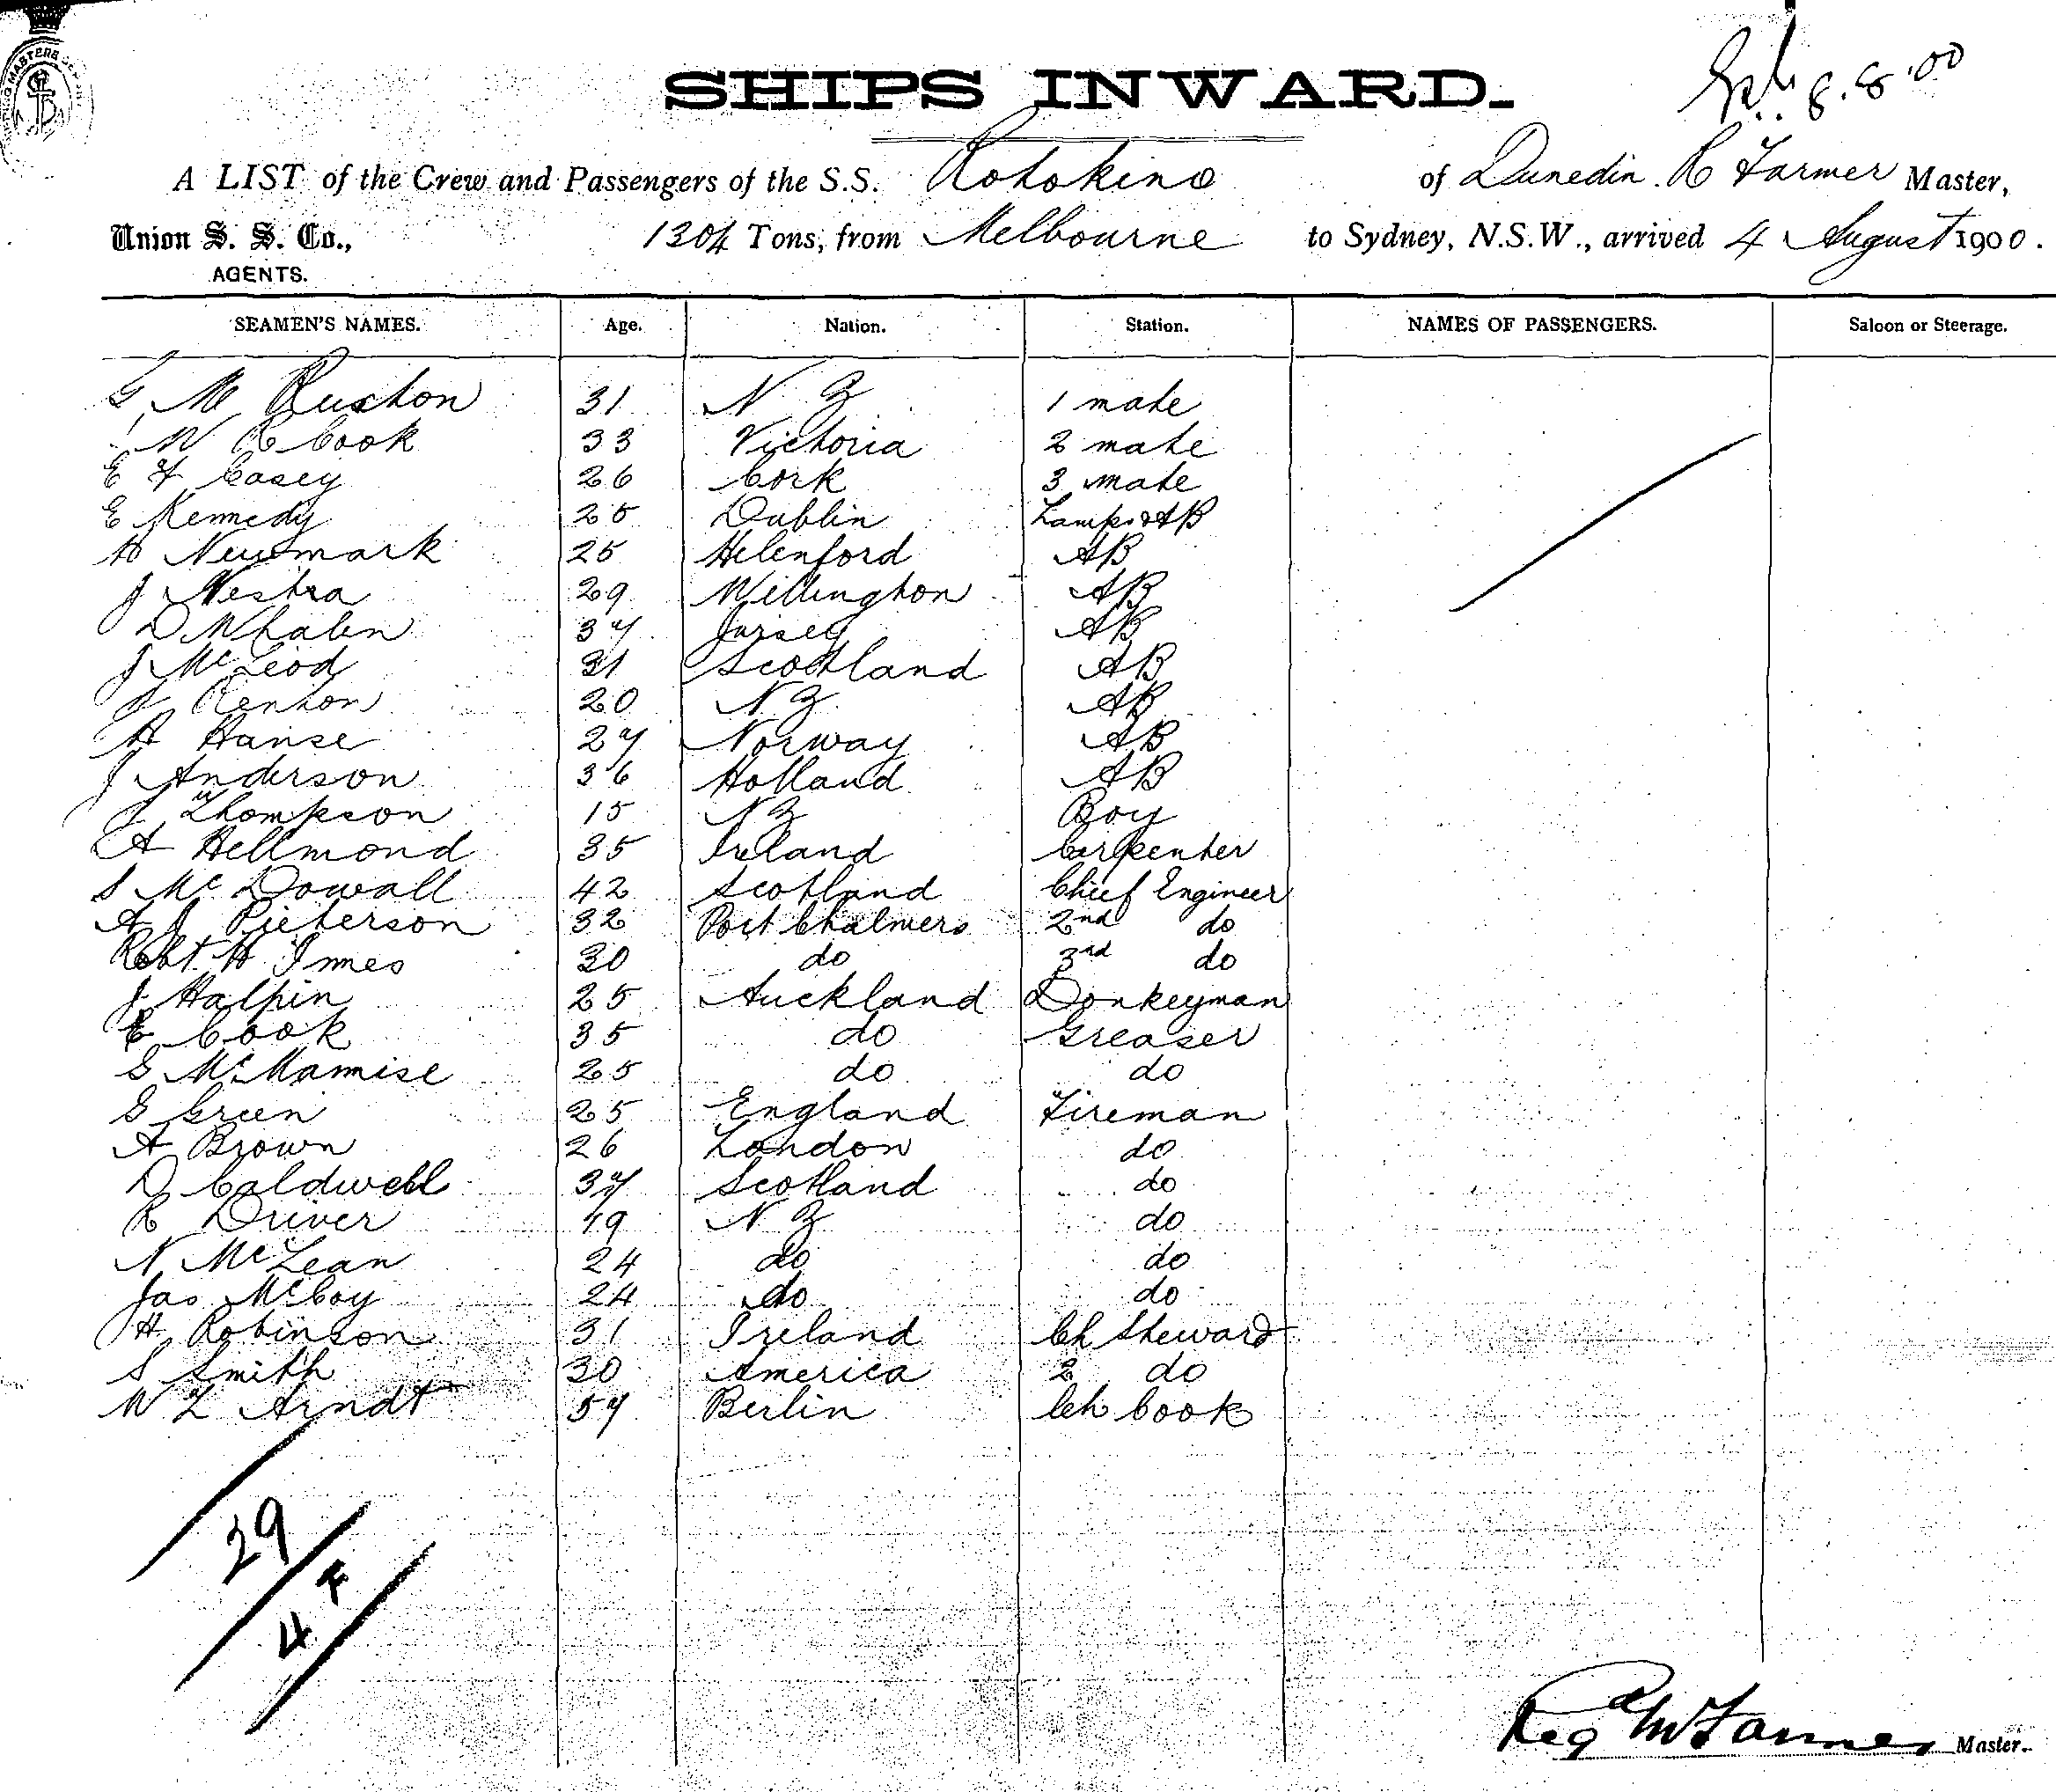 SHIPS INWARD.
8.8.00
A LIST of the Crew and Passengers of the S.S. Rotokino of Dunedin. R Farmer Master,
Union S. S. Co., 1304 Tons, from Melbourne to Sydney, N.S.W., arrived 4 August 1900.
AGENTS.
SEAMEN'S NAMES. Age. Nation. Station. NAMES OF PASSENGERS. Saloon or Steerage.
G M Ruxton 31 N Z 1 mate
W R Cook 33 Victoria 2 mate
E H Casey 26 Cork 3 mate
E Kennedy 25 Dublin Lamps & AB
H Newmark 25 Helenford AB
J Nestra 29 Willington AB
D Whalen 37 Jersey AB
J McLeod 31 Scotland AB
J Renton 20 N Z AB
A Hanse 27 Norway AB
J Anderson 36 Holland AB
J Thompson 15 N Z Boy
A Hellmond 35 Ireland Carpenter
S McDowall 42 Scotland Chief Engineer
A J Pieterson 32 Port Chalmers 2nd do
Robt H Innes 30 do 3rd do
J Halpin 25 Auckland Donkeyman
E Cook 35 do Greaser
G McMamise 25 do do
G Green 25 England Fireman
A Brown 26 London do
D Caldwell 37 Scotland do
R Driver 19 N Z do
N McLean 24 do do
Jas McCoy 24 do do
H Robinson 31 Ireland Ch Steward
S Smith 30 America 2 do
W L Arndt 57 Berlin Ch Cook
29
4
Reg M Farmer Master.